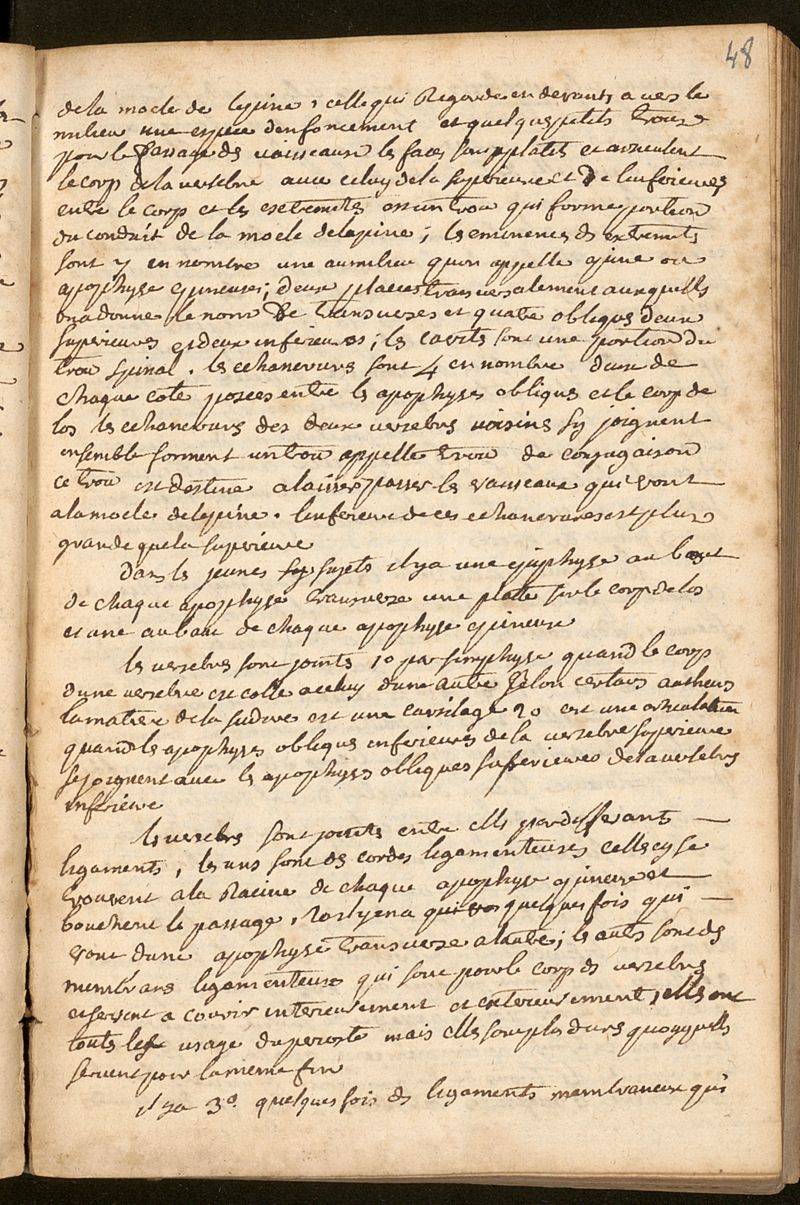 48
de la moele de lepine, celle qui Regarde en devant, a vers le
milieu une espece denfoncement et quelques petits trous
pour le passage ds vaisseaux les faces sont plates et articulent
le corp de la vertebre avec celuy de la superieure et De linferieures
entre le corp et ls extremités est un trou qui forme portion
du conduit de la moele delepine; ls eminences ds extremités
sont 7 en nombre une au milieu quon appelle epine ou
apophyse epineuse; deux placées transversalement auxquells
on a donné le nom De transverses et quatre obliqus deux
superieures et deux inferieures; ls cavités sont une portion du
trou spinal. ls echancrures sont 4 en nombre deux de
chaque coté posées entre ls apophyses obliqus et le corp de
los ls echancrures des deux vertebrs voisins sy joignent
ensemble forment un trou appellé trou de conjugaison
ce trou est destiné a laisser passer ls vaisseaux qui vont
a la moele delepine. linferieure de ces echancrures est plus
grande que la superieure
Dans ls jeunes sujets il y a une epiphyse au bout
de chaque apophyse transverse une platte sur le corp de los
et une au bout de chaque apophyse epineuse
ls vertebrs sont joints 10 par simphyse quand le corp
dune vertebre est collé a celuy dune autre Selon certains autheurs
la matiere de la suture est une cartilage 20 est une articulation
quand ls apophyses obliqus inferieures de la vertebre superieure
se joignent avec ls apophyses obliques superieures de la vertebrs
inferieure
ls vertebrs sont joints entre ells par differants
ligaments, ls uns sont ds cordes ligamenteuses celles cy se
trouvent a la Racine de chaque apophyse epineuse et
bouchent le passage, il y en a quelques fois qui
vont dune apophyse transverse a lautre; ls autrs sont ds
membrans ligamenteuses qui sont pour le corp ds vertebrs
et servent a couvrir interieurement et exterieurement, ells ont
touts usage du perioste mais ells sont plus durs quoyquells
servent pour la meme fin
il y a 3o quelques fois ds ligaments membraneux qui